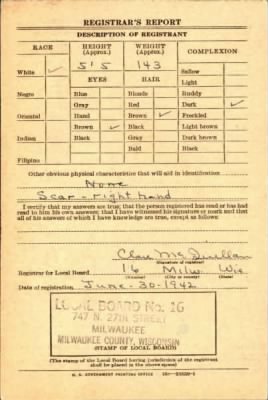 REGISTRAR'S REPORT
DESCRIPTION OF REGISTRANT
RACE HEIGHT (Approx.) WEIGHT (Approx.) COMPLEXION
5' 5 143 Sallow
White ✓ EYES HAIR Light
Negro Blue Blonde Ruddy
Gray Red Dark ✓
Oriental Hazel Brown ✓ Freckled
Brown ✓ Black Light brown
Indian Black Gray Dark brown
Bald Black
Filipino
Other obvious physical characteristics that will aid in identification
None
Scar - right hand
I certify that my answers are true; that the person registered has read or has had
read to him his own answers; that I have witnessed his signature or mark and that
all of his answers of which I have knowledge are true, except as follows:
(Signature of registrar)
Registrar for Local Board 16 Milw. Wis
(Number) (City or county) (State)
Date of registration June - 30 - 1942
LOCAL BOARD No. 16
747 N. 27TH STREET
MILWAUKEE
MILWAUKEE COUNTY, WISCONSIN
(STAMP OF LOCAL BOARD)
(The stamp of the Local Board having jurisdiction of the registrant
shall be placed in the above space)
U. S. GOVERNMENT PRINTING OFFICE